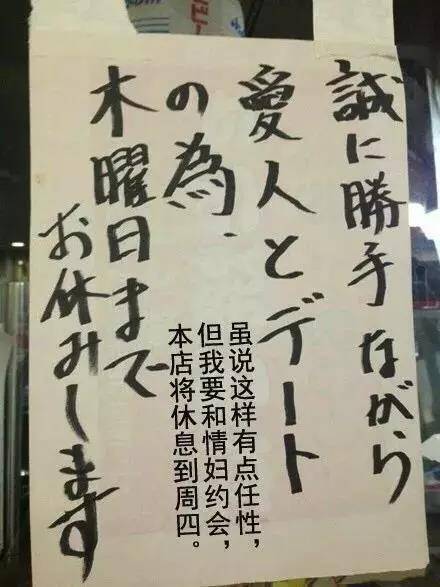 誠に勝手ながら
愛人とデート
の為、
木曜日まで
お休みします
虽说这样有点任性,
但我要和情妇约会,
本店将休息到周四。